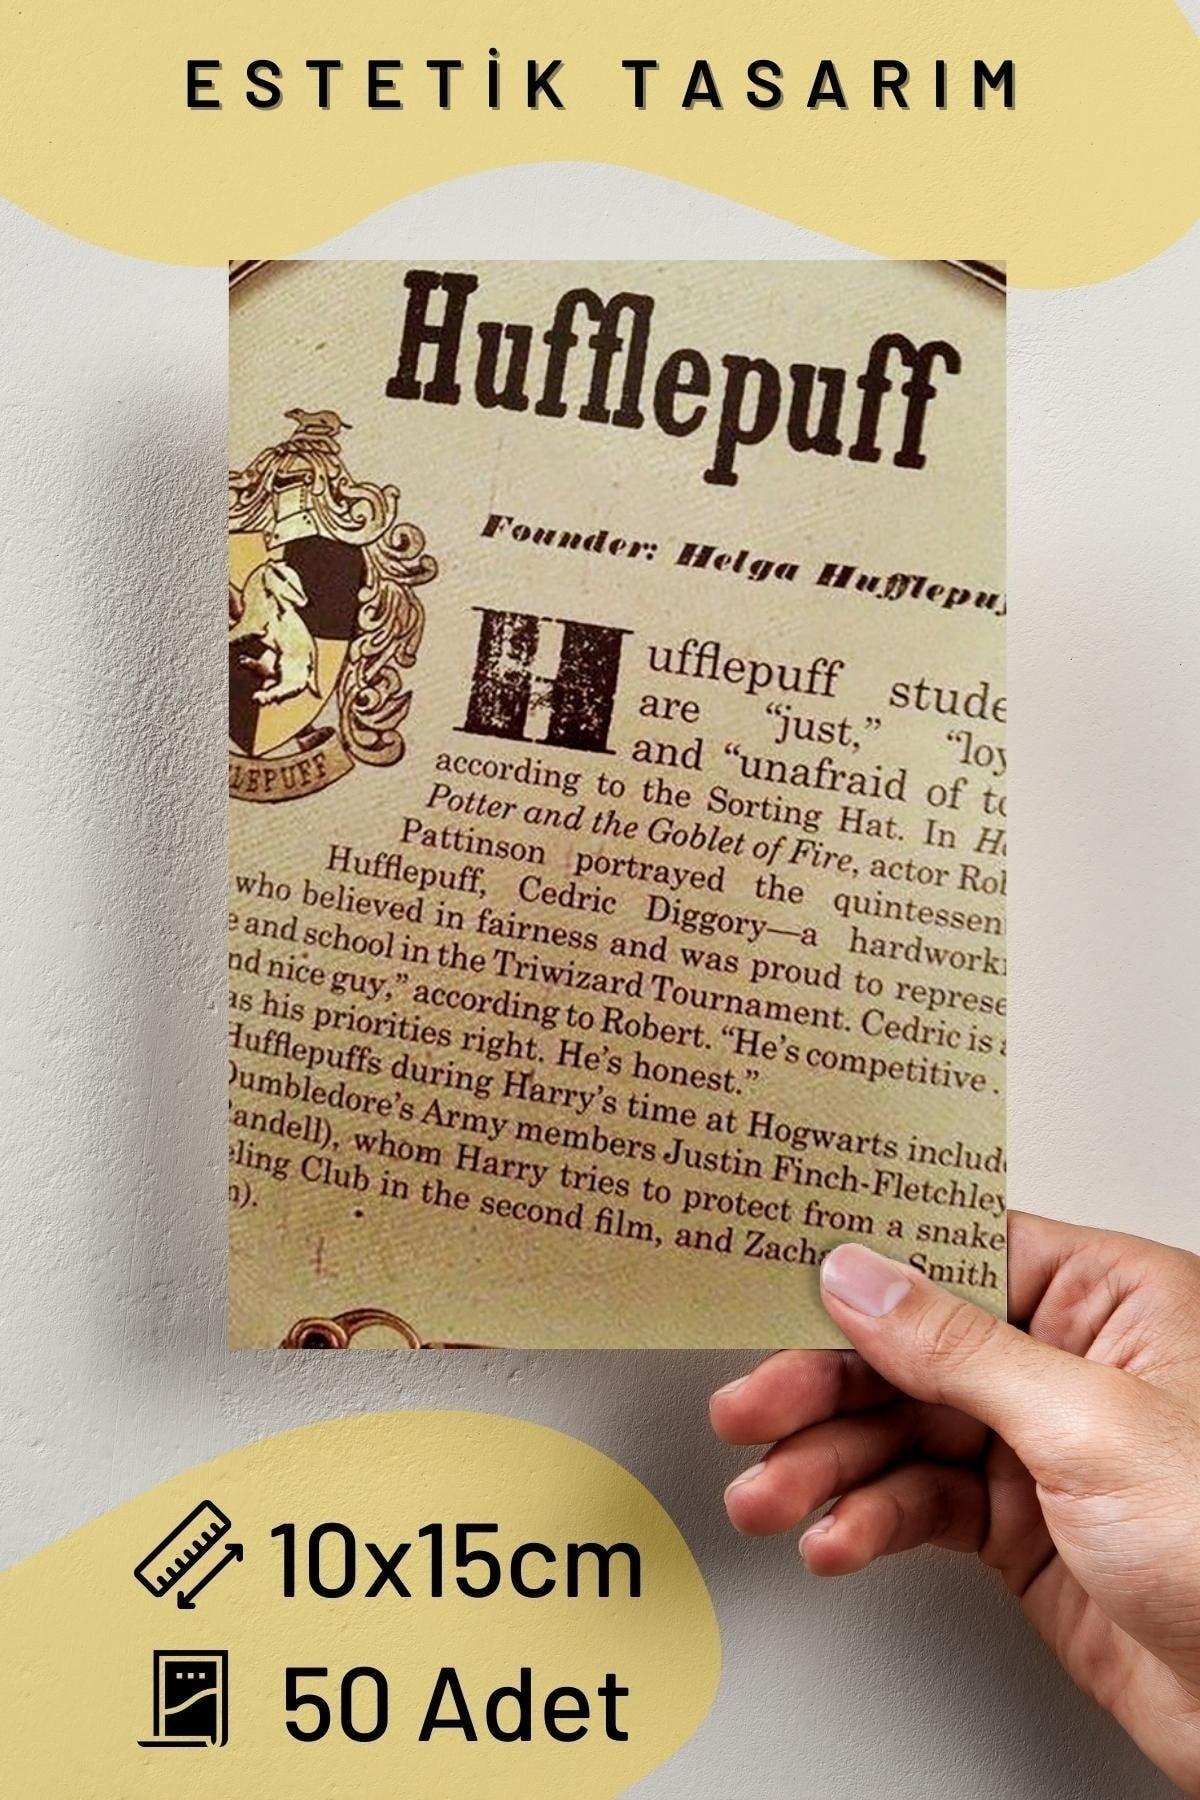 ESTETİK TASARIM
Hufflepuff
Founder: Helga Hufflepuf
Hufflepuff stude
are "just," "loy
and "unafraid of to
according to the Sorting Hat. In Ha
Potter and the Goblet of Fire, actor Rob
Pattinson portrayed the quintessen
Hufflepuff, Cedric Diggory—a hardworki
who believed in fairness and was proud to represe
e and school in the Triwizard Tournament. Cedric is a
nd nice guy," according to Robert. "He's competitive .
as his priorities right. He's honest."
Hufflepuffs during Harry's time at Hogwarts includ
Dumbledore's Army members Justin Finch-Fletchley
andell), whom Harry tries to protect from a snake
eling Club in the second film, and Zacha Smith
n).
LEPUFF
10x15cm
50 Adet